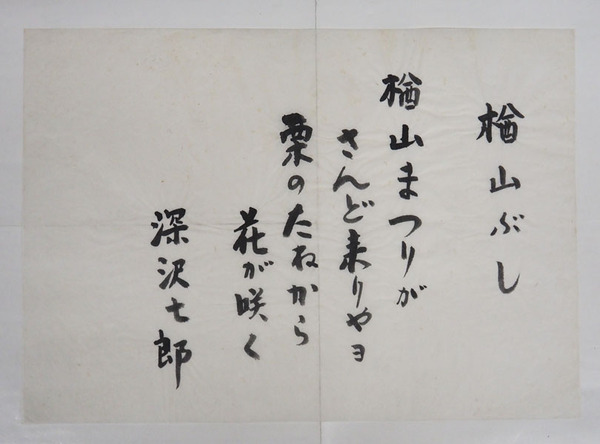 楢山ぶし
楢山まつりが
さんど来りやヨ
栗のたねから
花が咲く
深沢七郎